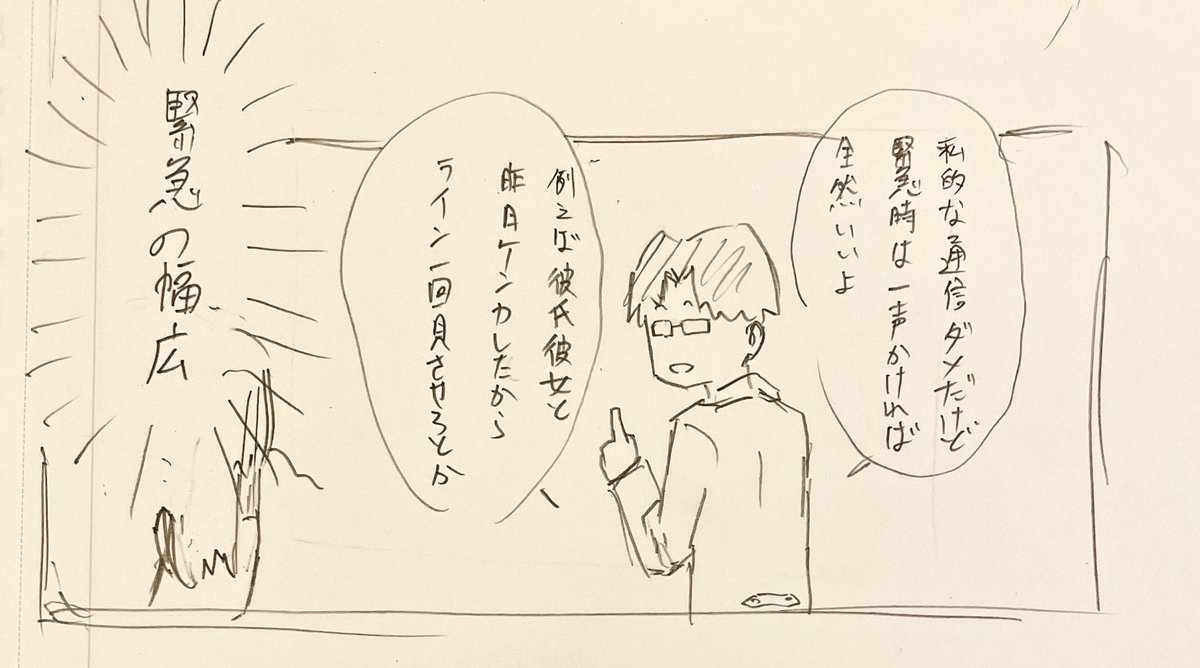 私的な通信ダメだけど
緊急時は一声かければ
全然いいよ
例えば彼氏彼女と
昨日ケンカしたから
ライン一回見させろとか
緊急の幅広